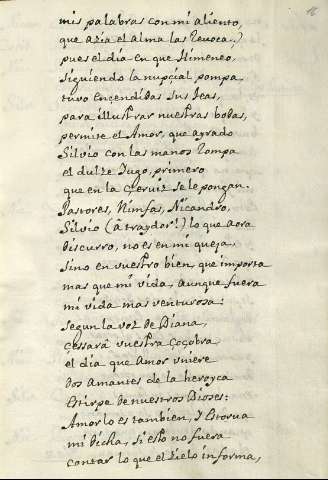 mis palabras con mi aliento,
que azia el alma las revoca.)
pues el dia en que Himeneo,
siguiendo la nupçial pompa
tuvo ençendidas sus teas,
para illustrar nuestras bodas,
permite el Amor, que ayrado
Silvio con las manos rompa
el dulze Iugo, primero
que en la çeruiz se le pongan.
Pastores, Nimfas, Nicandro,
Silvio (â traydor!) lo que aora
discurro, no es en mi queja,
sino en vuestro bien, que importa
mas que mi vida, aunque fuera
mi vida mas venturosa:
segun la voz de Diana,
çessarâ vuestra çoçobra
el dia que Amor vniere
dos Amantes de la heroyca
Estirpe de nuestros Dioses:
Amor lo es tambien, y estorua
mi dicha, si esto no fuera
contar lo que el zielo informa,